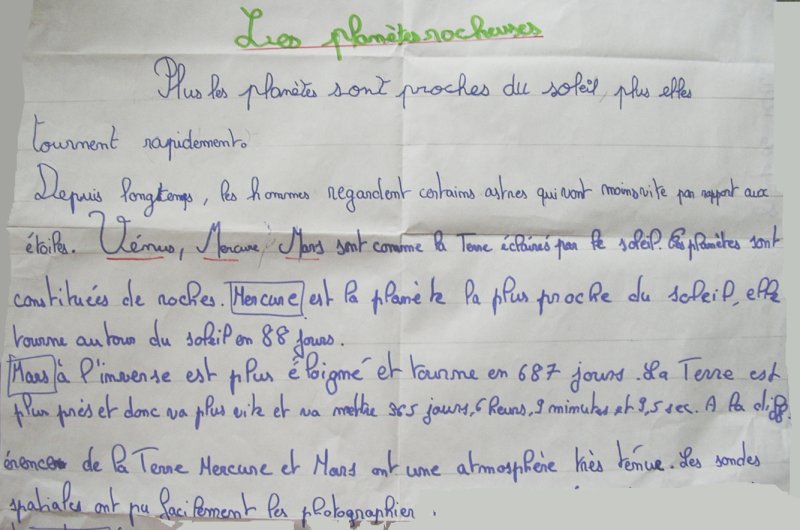 Les planètes rocheuses
Plus les planètes sont proches du soleil, plus elles
tournent rapidement.
Depuis longtemps, les hommes regardent certains astres qui vont moins vite par rapport aux
étoiles. Vénus, Mercure, Mars sont comme la Terre éclairés par le soleil. Ces planètes sont
constituées de roches. Mercure est la planète la plus proche du soleil, elle
tourne autour du soleil en 88 jours.
Mars à l'inverse est plus éloigné et tourne en 687 jours. La Terre est
plus près et donc va plus vite et va mettre 365 jours, 6 heures, 9 minutes et 9,5 sec. A la diff
érence de la Terre Mercure et Mars ont une atmosphère très ténue. Les sondes
spatiales ont pu facilement les photographier.